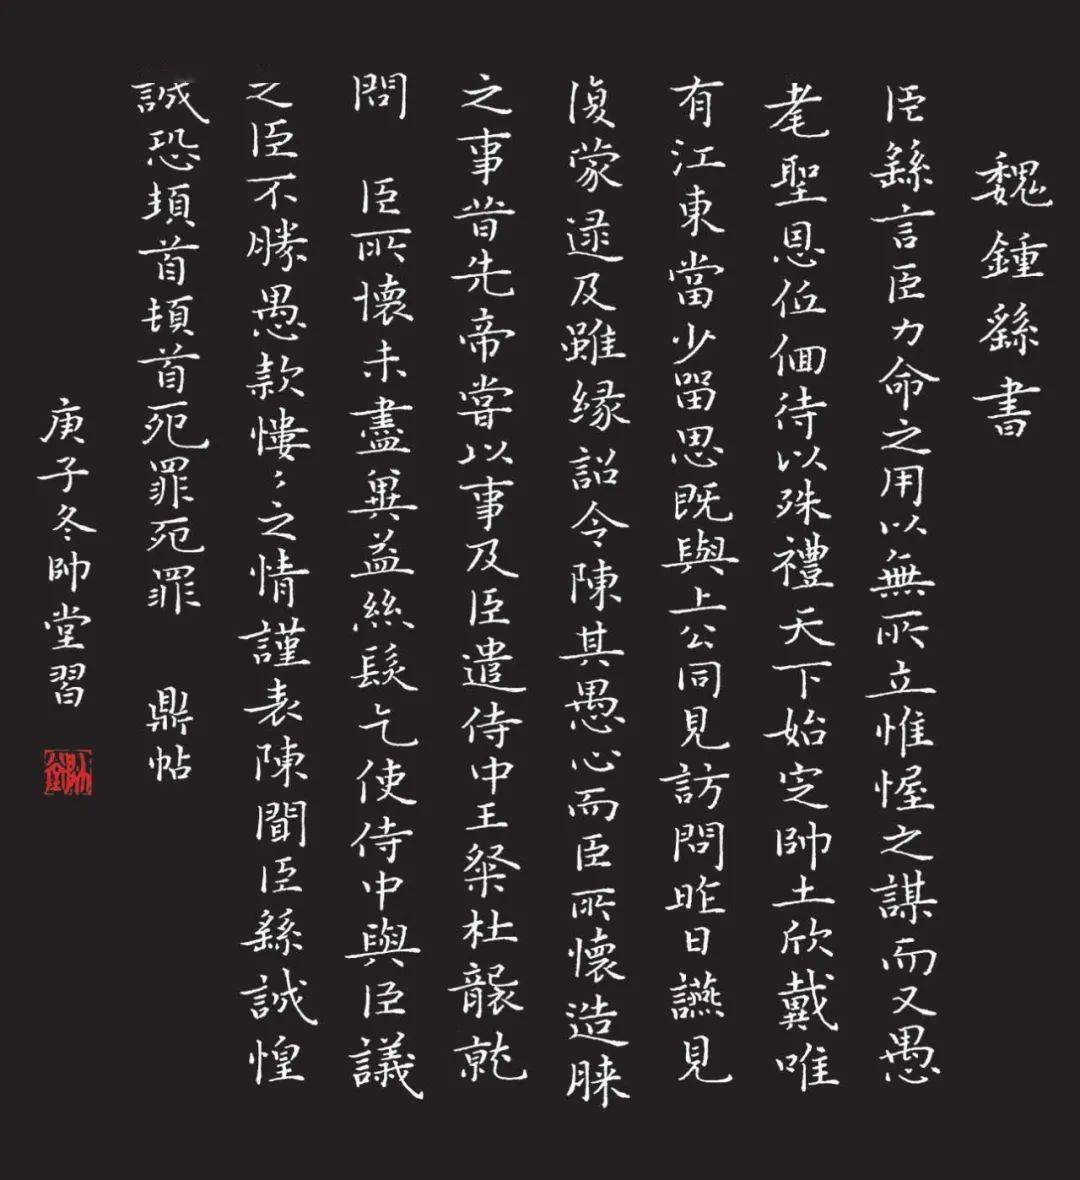 魏鍾繇書
臣繇言臣力命之用以無所立惟幄之謀而又愚
耄聖恩低佪待以殊禮天下始定帥土欣戴唯
有江東當少留思既與上公同見訪問昨日讌見
復蒙逮及雖緣詔令陳其愚心而臣所懷造膝
之事昔先帝嘗以事及臣遣侍中王粲杜襲就
問　臣所懷未盡冀益絲髮乞使侍中與臣議
之臣不勝愚款慺〻之情謹表陳聞臣繇誠惶
誠恐頓首頓首死罪死罪　鼎帖
庚子冬帥堂習
帥堂